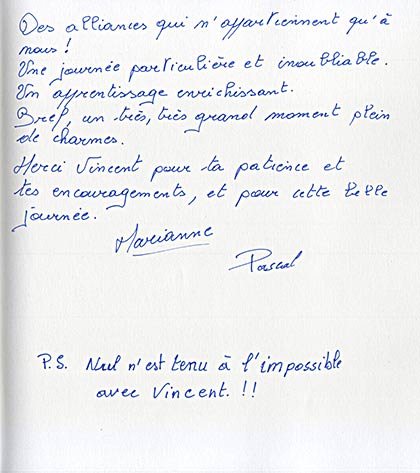 Des alliances qui n'appartiennent qu'à
nous !
Une journée particulière et inoubliable.
Un apprentissage enrichissant.
Bref, un très, très grand moment plein
de charmes.
Merci Vincent pour ta patience et
tes encouragements, et pour cette belle
journée.
Marianne
Pascal
P.S. Nul n'est tenu à l'impossible
avec Vincent. !!